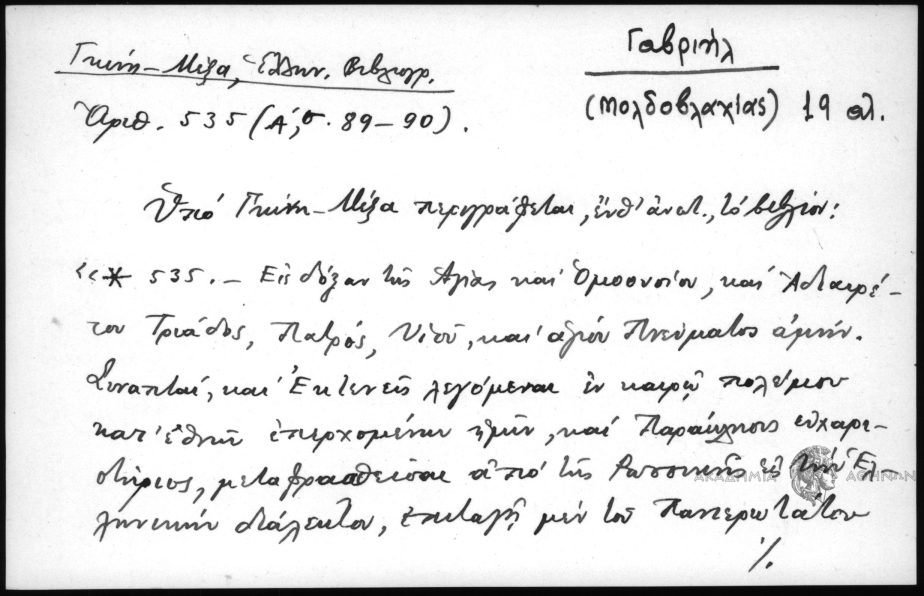 Γκίνη-Μέξα, Ἑλλην. Βιβλιογρ.
Ἀριθ. 535 (Α΄, σ. 89-90).
Γαβριήλ
(Μολδοβλαχίας) 19 αἰ.
Ὑπό Γκίνη-Μέξα περιγράφεται, ἔνθ' ἀνωτ., τό βιβλίον:
«* 535. - Εἰς δόξαν τῆς Ἁγίας καί Ὁμοουσίου, καί Ἀδιαιρέ-
του Τριάδος, Πατρός, Υἱοῦ, καί ἁγίου Πνεύματος ἀμήν.
Συναπταί, καί Ἐκτενεῖς λεγόμεναι ἐν καιρῷ πολέμου
κατ' ἐθνῶν ἐπερχομένων ἡμῖν, καί Παράκλησις εὐχαρι-
στήριος, μεταφρασθεῖσαι ἀπό τῆς Ρωσσικῆς εἰς τήν Ἑλ-
ληνικήν διάλεκτον, ἐπιταγῇ μέν τοῦ Πανιερωτάτου
./.
ΑΚΑΔΗΜΙΑ ΑΘΗΝΩΝ